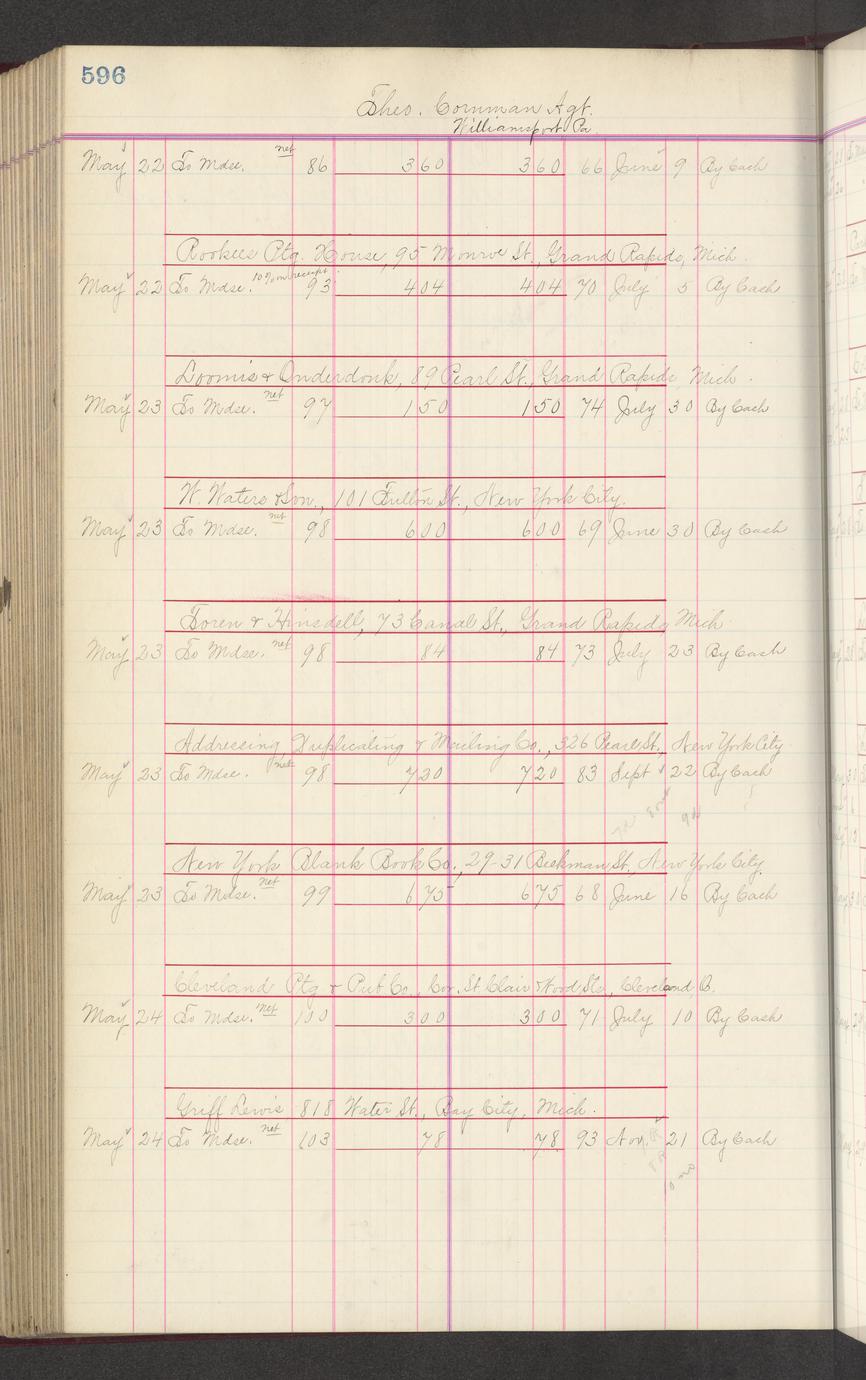 596
Theo. Cornman Agt.
Williamsport, Pa.
May 22 To Mdse. net 86 3 60 3 60 66 June 9 By Cash
Rookees Ptg. House, 95 Monroe St., Grand Rapids, Mich.
May 22 To Mdse. 10% on receipt 93 4 04 4 04 70 July 5 By Cash
Loomis & Onderdonk, 89 Pearl St., Grand Rapids, Mich.
May 23 To Mdse. net 97 1 50 1 50 74 July 30 By Cash
W. Waters & Son., 101 Fulton St., New York City.
May 23 To Mdse. net 98 6 00 6 00 69 June 30 By Cash
Loren & Hinsdell, 73 Canal St., Grand Rapids Mich.
May 23 To Mdse. net 98 84 84 73 July 23 By Cash
Addressing, Duplicating & Mailing Co., 326 Pearl St., New York City
May 23 To Mdse. net 98 7 20 7 20 83 Sept 22 By Cash
New York Blank Book Co., 29-31 Beekman St., New York City.
May 23 To Mdse. net 99 6 75 6 75 68 June 16 By Cash
Cleveland Ptg & Pub Co., Cor. St Clair & Wood Sts, Cleveland, O.
May 24 To Mdse. net 100 3 00 3 00 71 July 10 By Cash
Griff Lewis 818 Water St., Bay City, Mich.
May 24 To Mdse. net 103 78 78 93 Nov. 21 By Cash